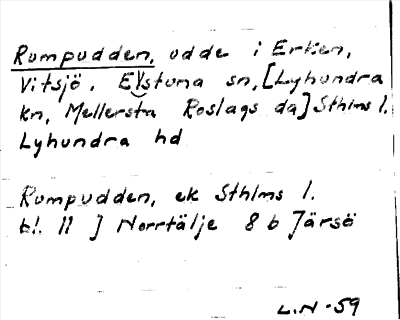 Rumpudden, udde i Erken,
Vitsjö. Elstuna sn, [Lyhundra
kn, Mellersta Roslags da] Sthlms l.
Lyhundra hd
Rumpudden, ek Sthlms l.
bl. 11 J Norrtälje 8 b Järsö
L.N-59